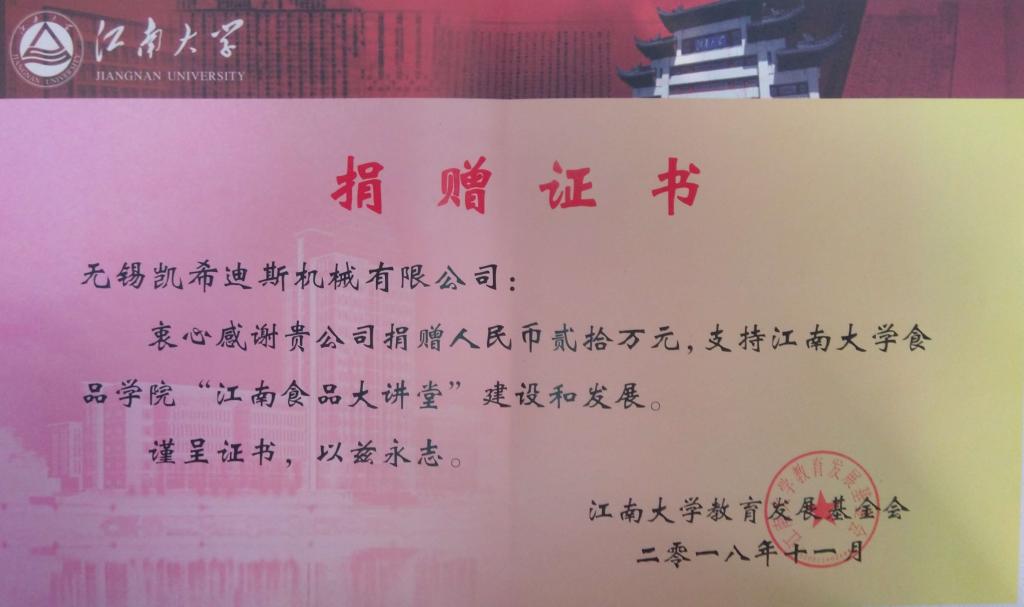 江南大学
JIANGNAN UNIVERSITY
捐赠证书
无锡凯希迪斯机械有限公司：
衷心感谢贵公司捐赠人民币贰拾万元，支持江南大学食
品学院“江南食品大讲堂”建设和发展。
谨呈证书，以兹永志。
江南大学教育发展基金会
二零一八年十一月